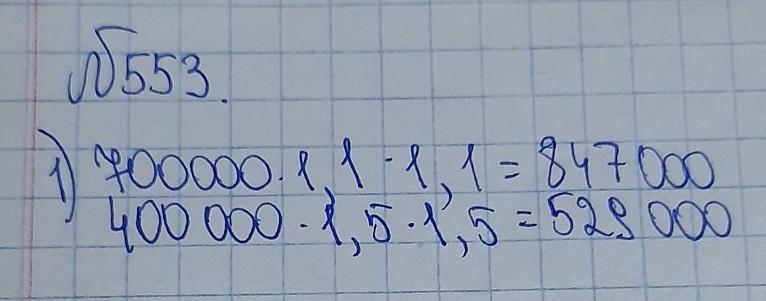 №553.
1) 700000·1,1·1,1=847000
400 000·1,5·1,5=529 000